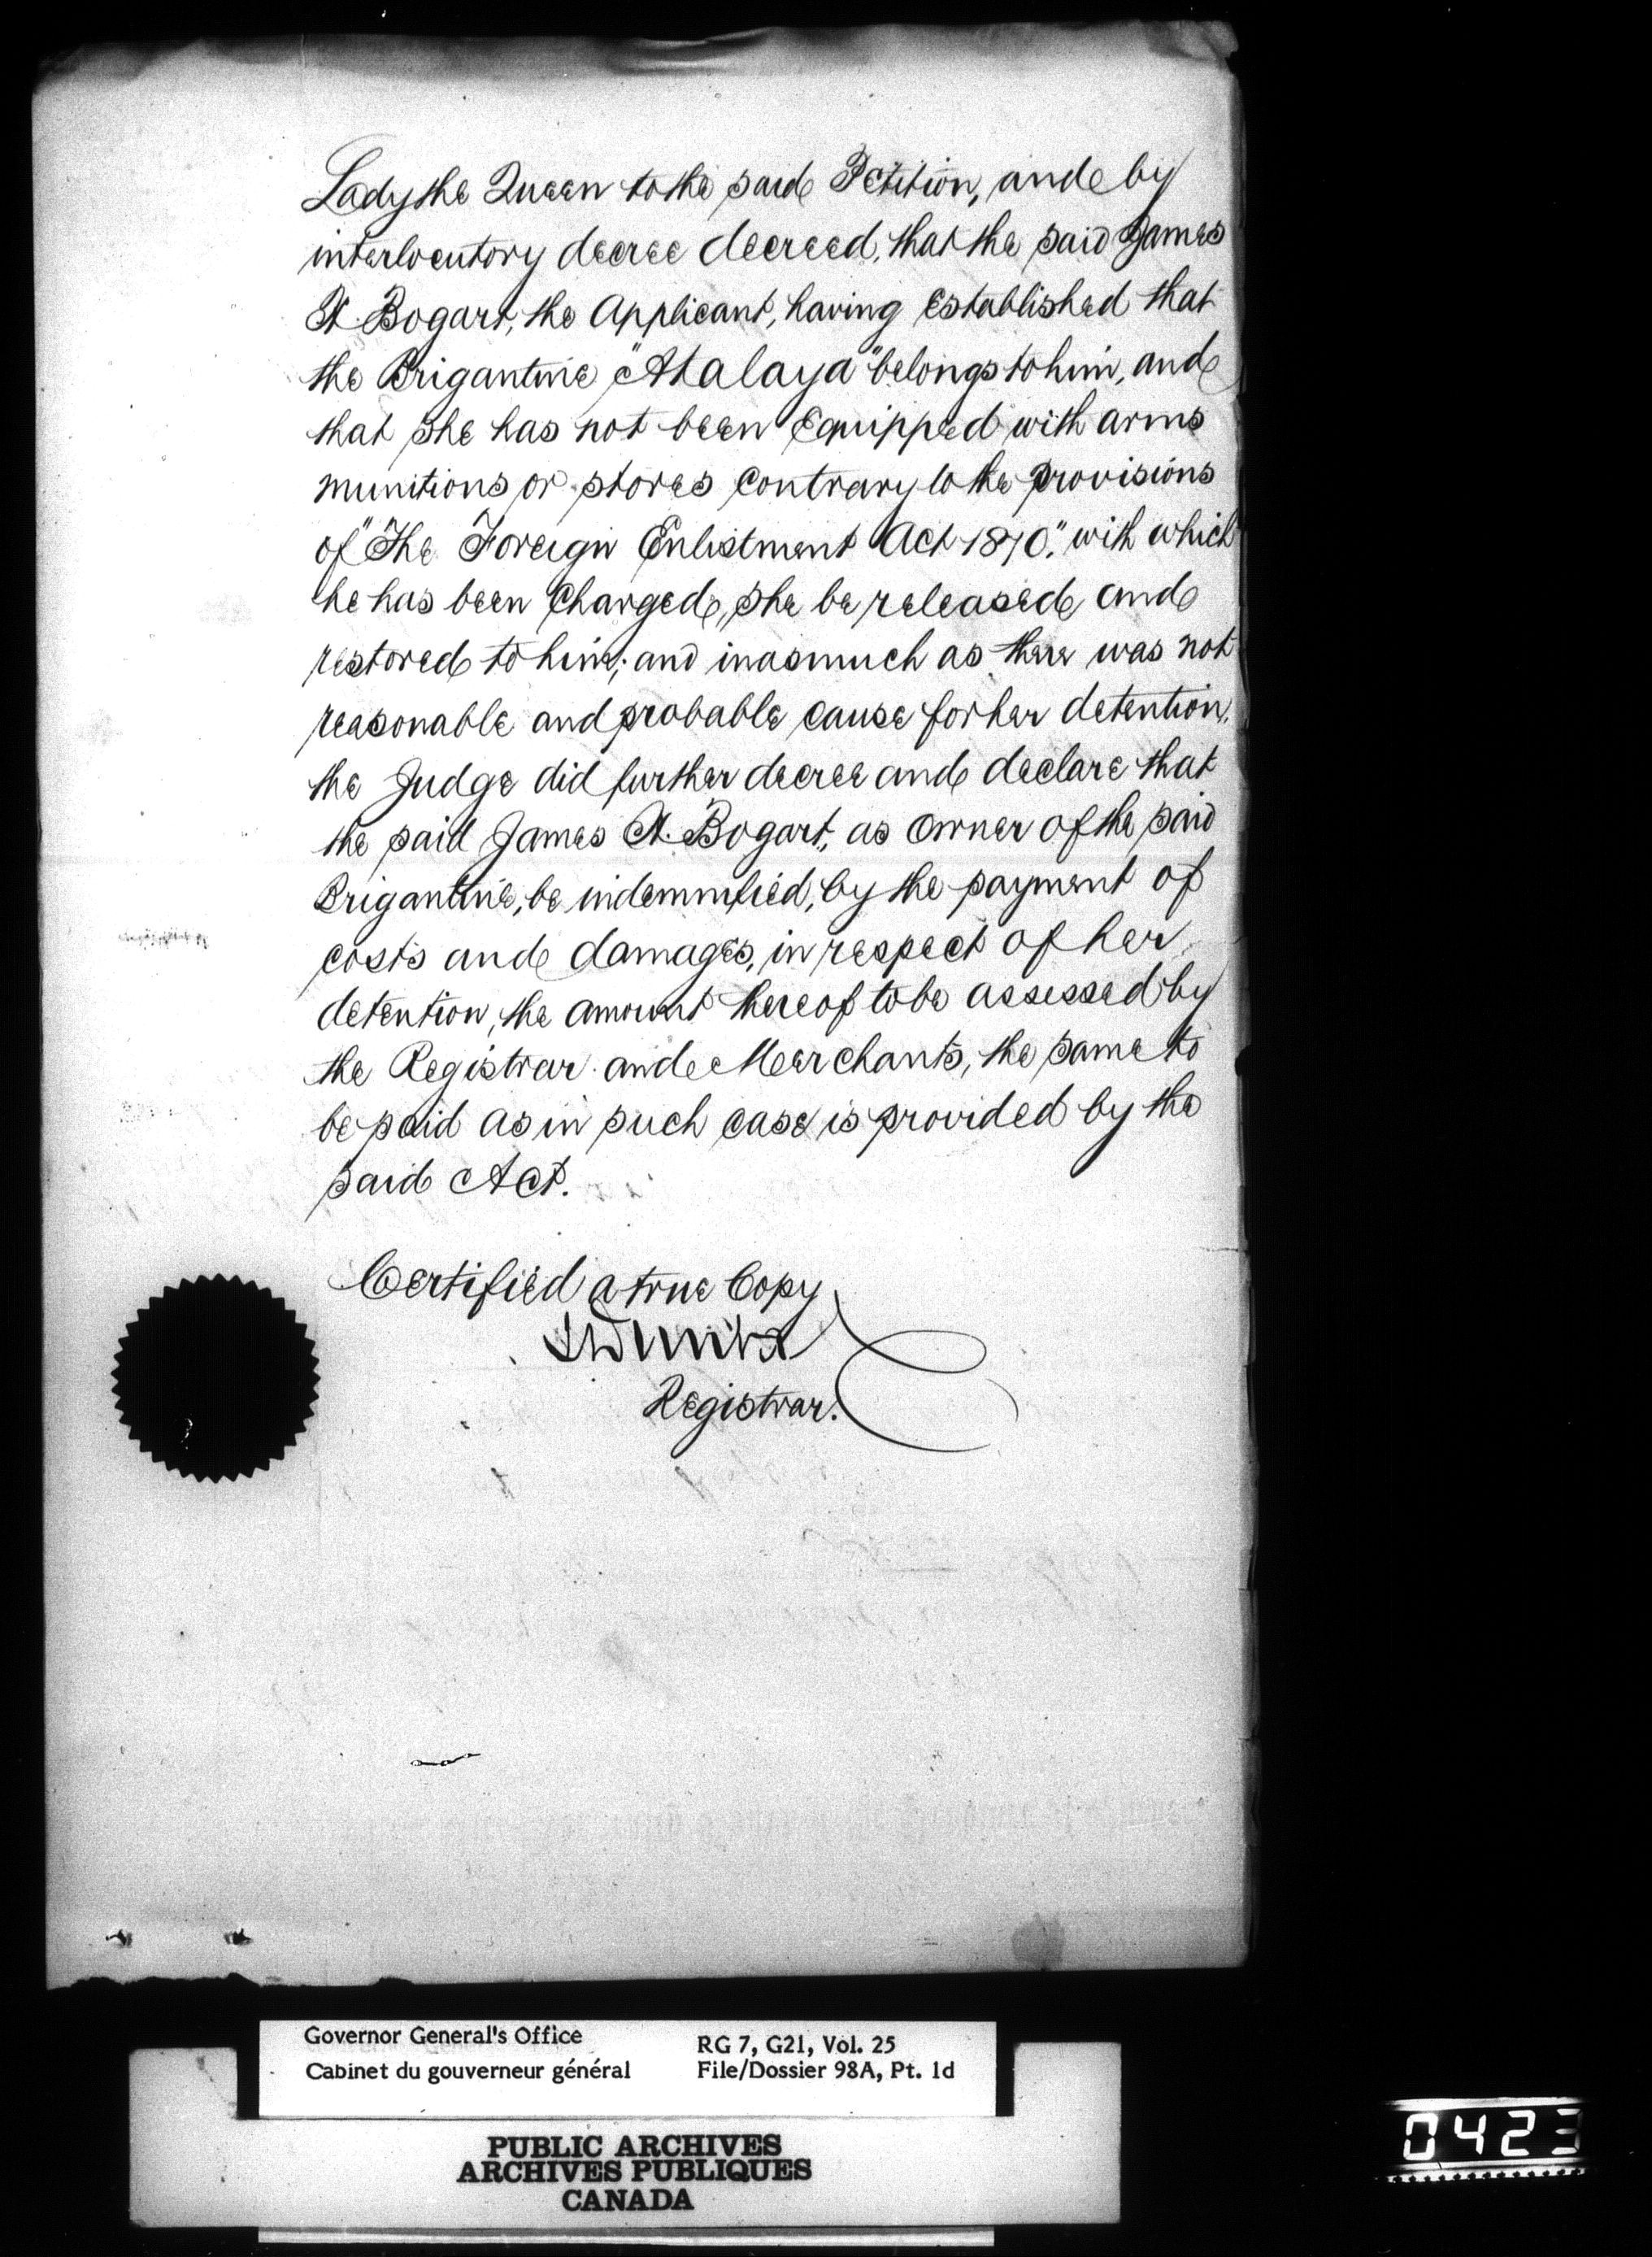 Lady the Queen to the said Petition, and by
interlocutory decree decreed, that the said James
A. Bogart, the Applicant, having established that
the Brigantine "Atalaya" belongs to him, and
that she has not been Equipped with arms
munitions or stores contrary to the provisions
of "The Foreign Enlistment Act 1870." with which
he has been Charged, she be released and
restored to him; and inasmuch as there was not
reasonable and probable cause for her detention,
the Judge did further decree and declare that
the said James A. Bogart, as Owner of the said
Brigantine, be indemnified, by the payment of
costs and damages, in respect of her
detention, the amount thereof to be assessed by
the Registrar and Merchants, the same to
be paid as in such case is provided by the
said Act.
Certified a true Copy
Registrar.
Governor General's Office
Cabinet du gouverneur général
RG 7, G21, Vol. 25
File/Dossier 98A, Pt. 1d
PUBLIC ARCHIVES
ARCHIVES PUBLIQUES
CANADA
0423